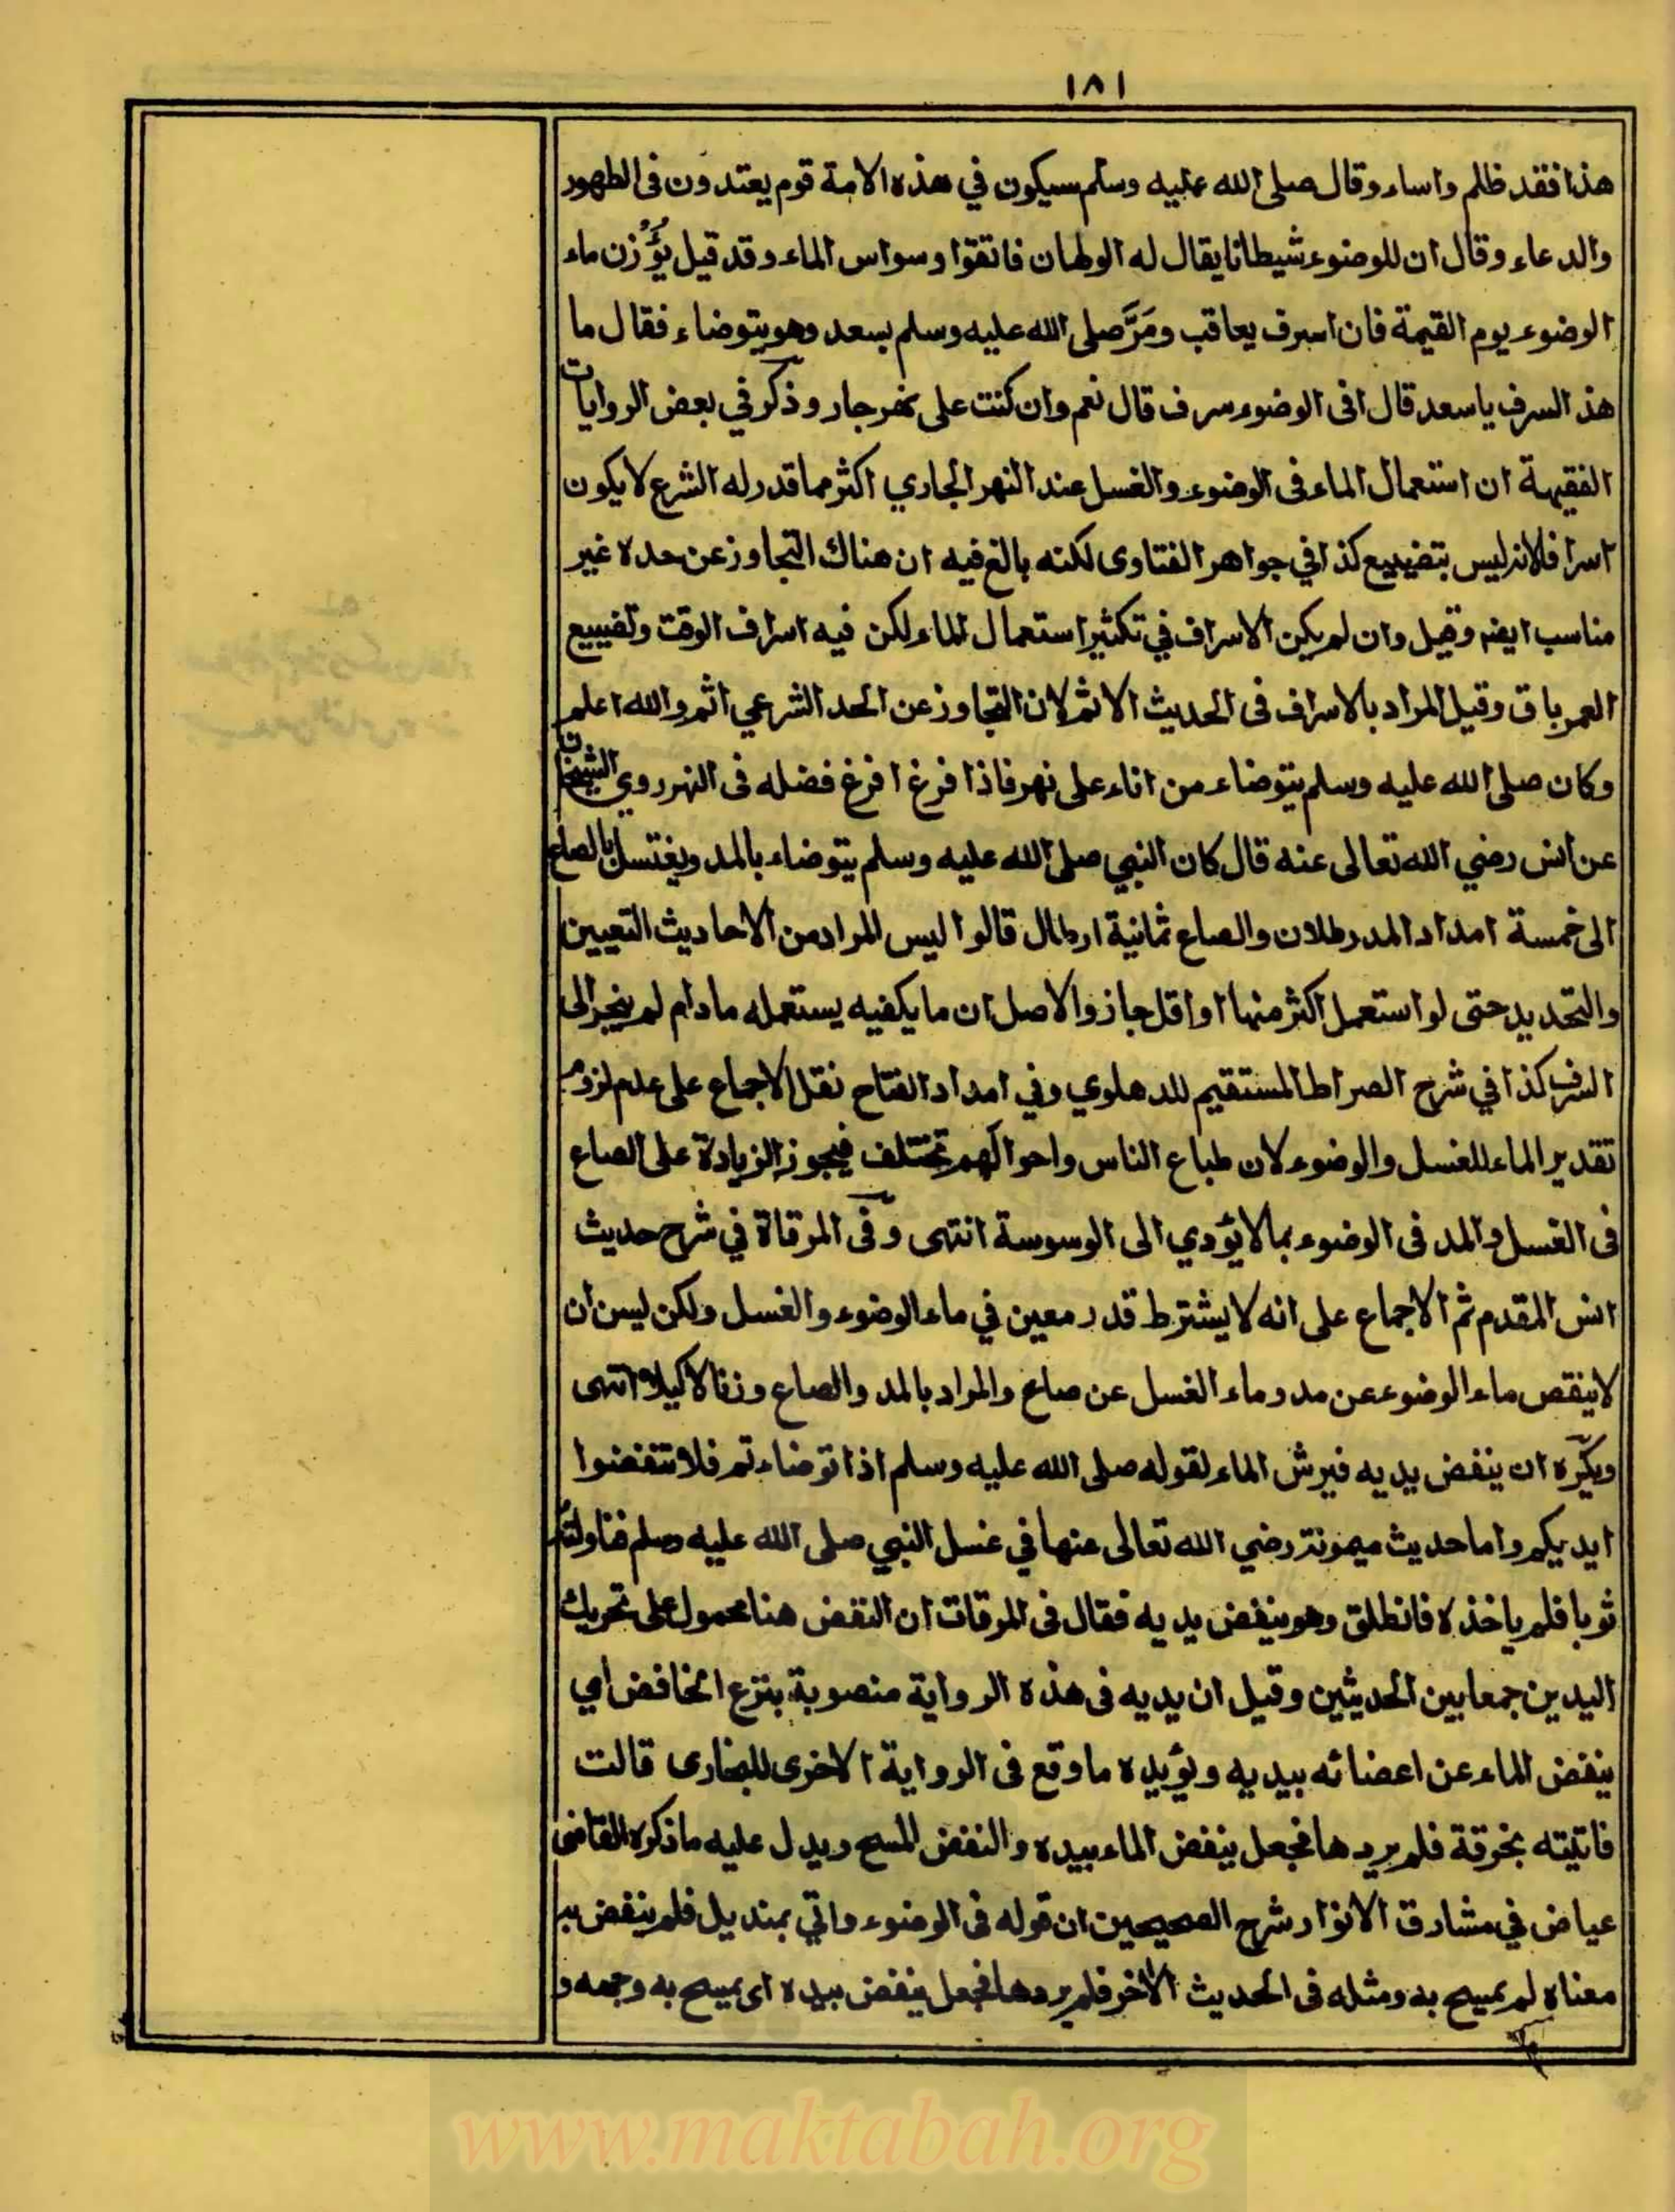 ١٨١
هذا فقد ظلم واساء وقال صلى الله عليه وسلم سيكون في هذه الامة قوم يعتدون فى الطهور
والدعاء وقال ان للوضوء شيطانا يقال له الولهان فاتقوا وسواس الماء وقد قيل يُؤْزن ماء
الوضوء يوم القيمة فان اسرف يعاقب ومَرَّ صلى الله عليه وسلم بسعد وهو يتوضاء فقال ما
هذ السرف ياسعد قال افى الوضوء سرف قال نعم وان كنت على نهر جار وذكر في بعض الروايات
الفقيهة ان استعمال الماء فى الوضوء والغسل عند النهر الجاري اكثر مما قدر له الشرع لا يكون
اسرافا لانه ليس بتضييع كذا في جواهر الفتاوى لكنه بالغ فيه ان هناك التجاوز عن حده غير
مناسب ايضه وقيل وان لم يكن الاسراف في تكثير استعمال الماء لكن فيه اسراف الوقت وتضييع
العمر باق وقيل المراد بالاسراف فى الحديث الاثم لان التجاوز عن الحد الشرعي اثم والله اعلم
وكان صلى الله عليه وسلم يتوضاء من اناء على نهر فاذا فرغ افرغ فضله فى النهر روي الشيخان
عن انس رضي الله تعالى عنه قال كان النبي صلى الله عليه وسلم يتوضاء بالمد ويغتسل بالصاع
الى خمسة امداد المد رطلان والصاع ثمانية ارطال قالوا ليس المراد من الاحاديث التعيين
والتحديد حتى لو استعمل اكثر منها او اقل جاز والاصل ان ما يكفيه يستعمله مادام لم ينجر الى
السرف كذا في شرح الصراط المستقيم للدهلوي وفي امداد الفتاح نقل الاجماع على عدم لزوم
تقدير الماء للغسل والوضوء لان طباع الناس واحوالهم تختلف فيجوز الزيادة على الصاع
فى الغسل والمد فى الوضوء بما لا يؤدي الى الوسوسة انتهى وفى المرقاة في شرح حديث
انس المقدم ثم الاجماع على انه لا يشترط قدر معين في ماء الوضوء والغسل ولكن ليس ان
لا ينقص ماء الوضوء عن مد وماء الغسل عن صاع والمراد بالمد والصاع وزنا لا كيلا انتهى
ويكره ان ينفض يديه فيرش الماء لقوله صلى الله عليه وسلم اذا توضاءتم فلا تنفضوا
ايديكم واما حديث ميمونة رضي الله تعالى عنها في غسل النبي صلى الله عليه وسلم فناولته
ثوبا فلم ياخذه فانطلق وهو ينفض يديه فقال فى المرقات ان النفض هنا محمول على تحريك
اليدين جمعا بين الحديثين وقيل ان يديه فى هذه الرواية منصوبة بنزع الخافض اي
ينفض الماء عن اعضائه بيديه ويؤيده ما وقع فى الرواية الاخرى للبخارى قالت
فاتيته بخرقة فلم يردها فجعل ينفض الماء بيده والنفض المسح ويدل عليه ما ذكره القاضى
عياض في مشارق الانوار شرح الصحيحين ان قوله فى الوضوء واتي بمنديل فلم ينفض به
معناه لم يمسح به ومثله فى الحديث الاخر فلم يردها فجعل ينفض بيده اى يمسح به وجهه و
www.maktabah.org